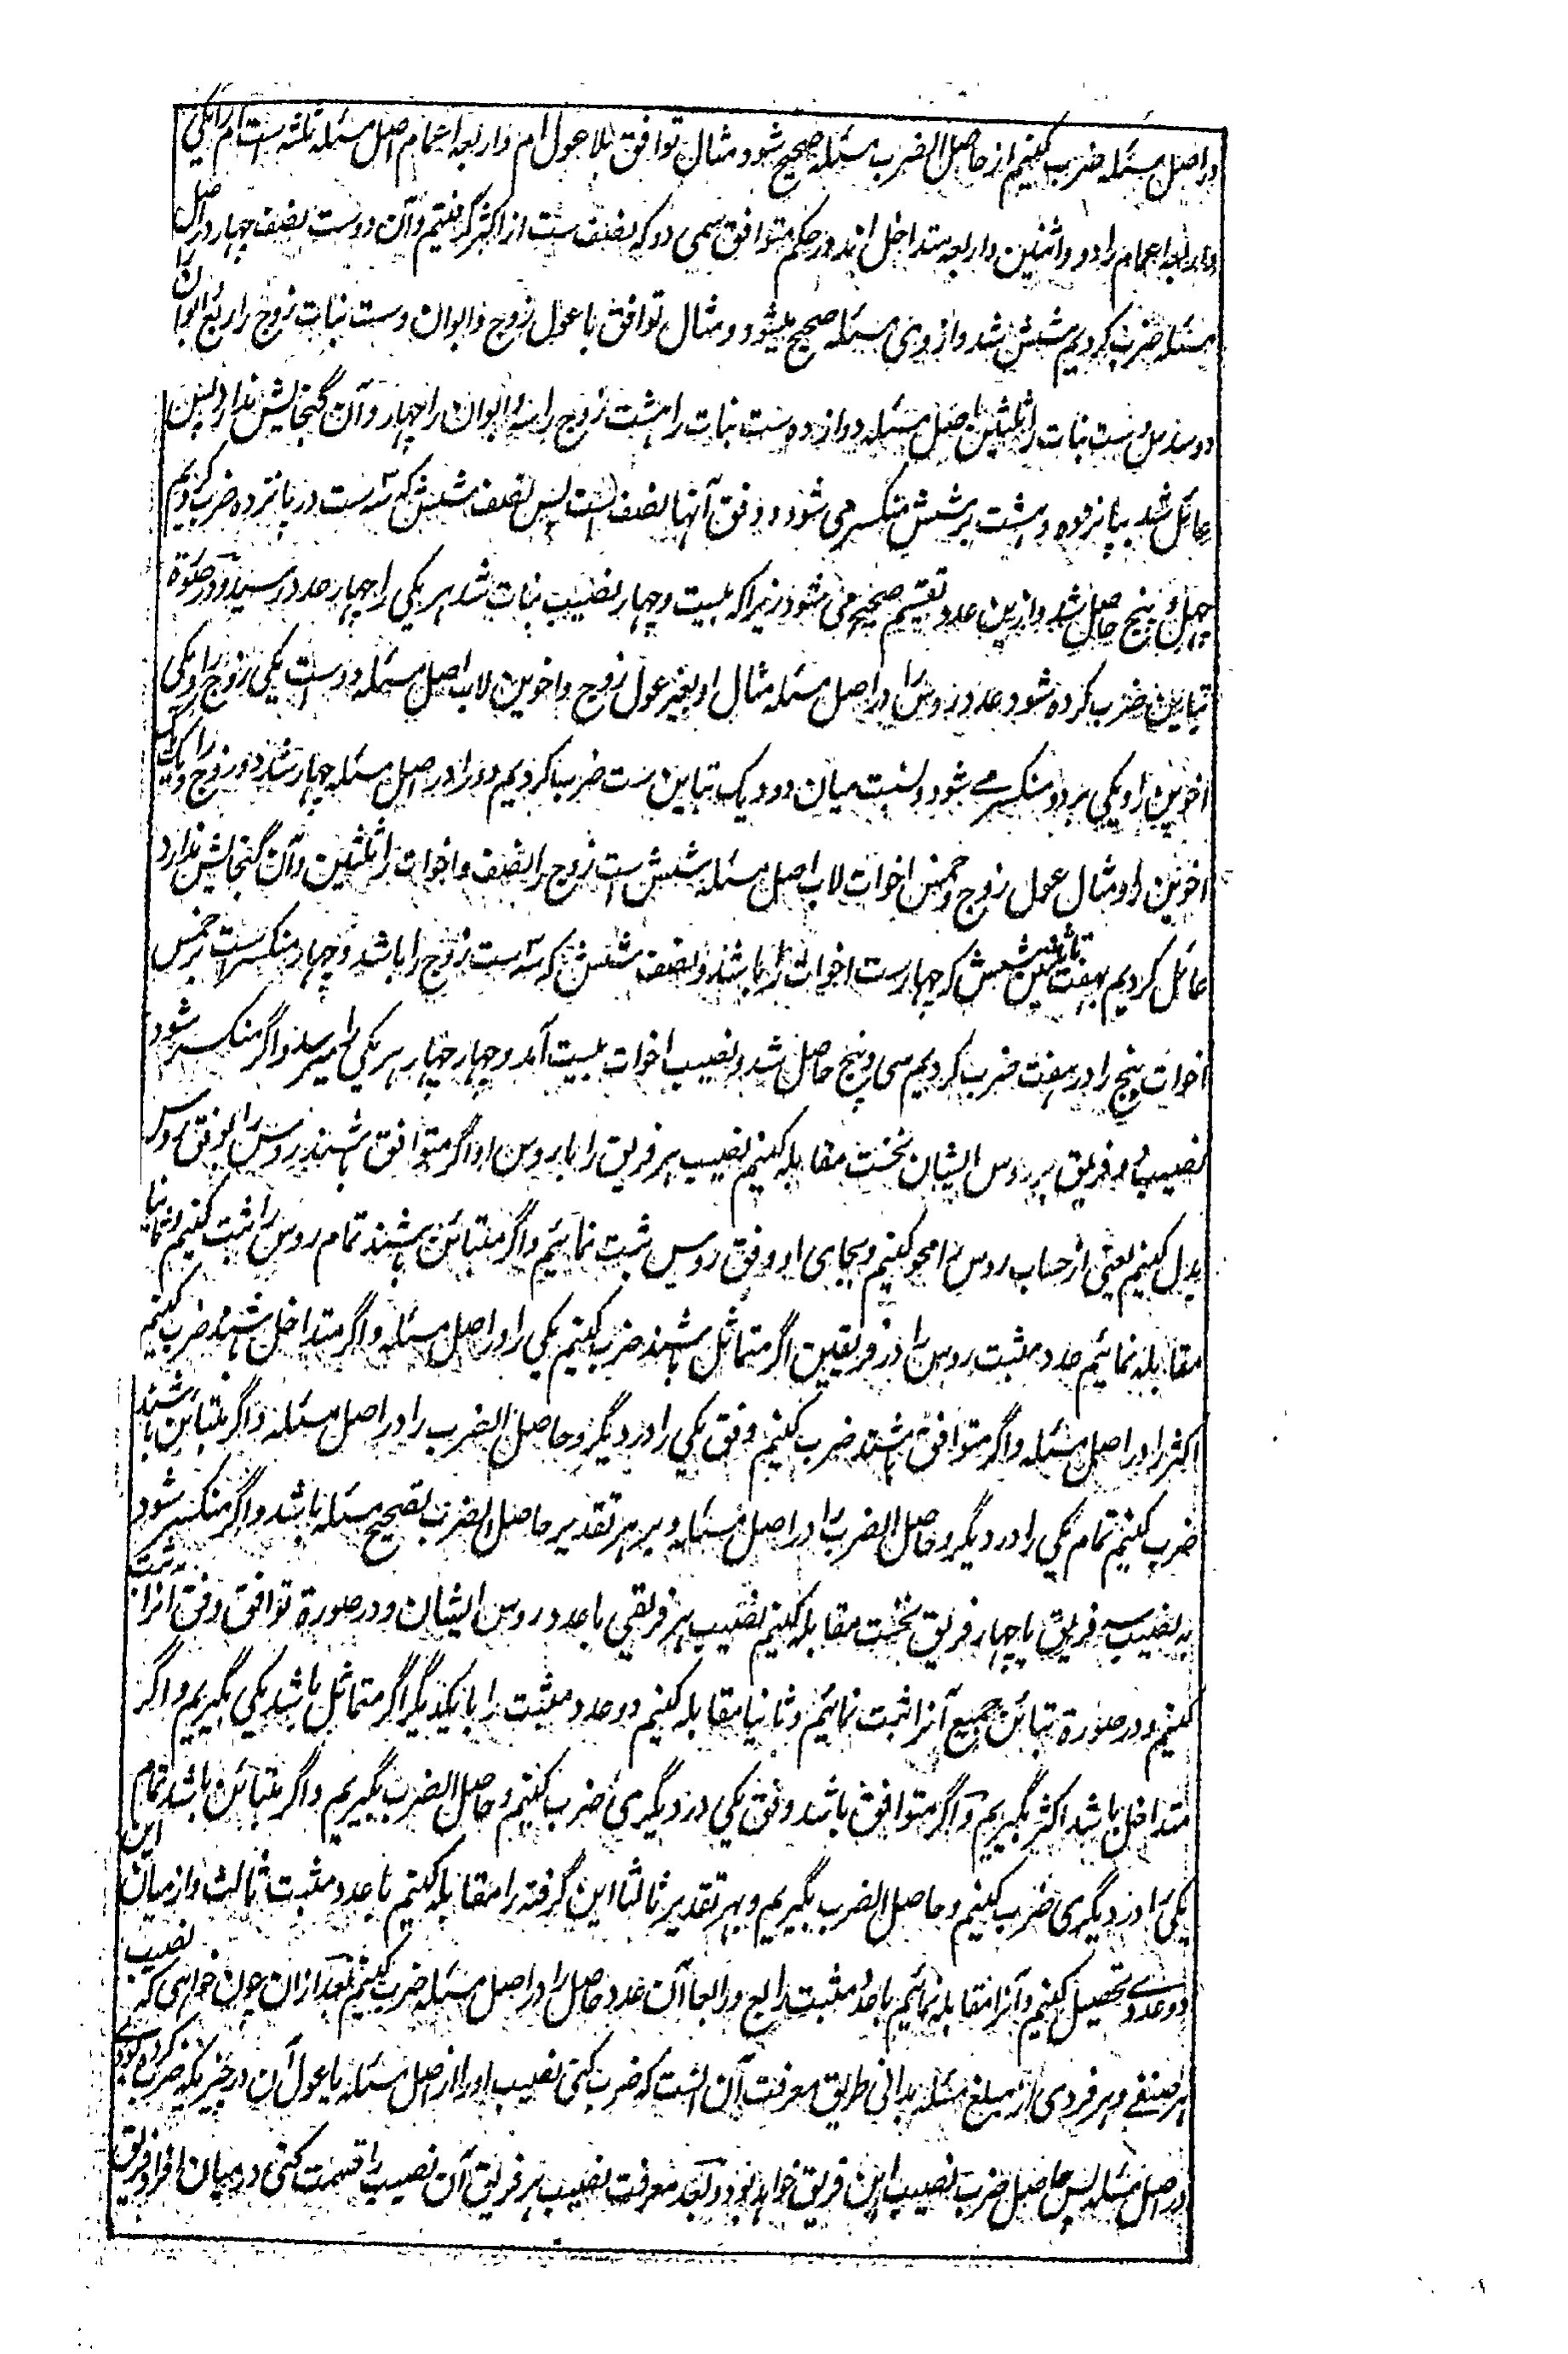 در اصل مسئله ضرب کنیم از حاصل الضرب مسئله صحیح شود و مثال توافق بلا عول ام و اربعه اعمام اصل مسئله ثلثه است ام را یکی
و اربعه اعمام را دو و اثنین و اربعه متداخل اند در حکم متوافق سمی دو که نصف ست از اکثر گرفتیم و آن دوست نصف چهار در اصل
مسئله ضرب کردیم شش شد و از وی مسئله صحیح میشود و مثال توافق با عول زوج و ابوان و ست بنات زوج را ربع ابوان را
دو سدس و ست بنات را ثلثین اصل مسئله دوازده ست بنات را هشت زوج را سه و ابوان را چهار و آن گنجایش ندارد پس
عائل شد بپانزده و هشت بر شش منکسر می شود و وفق آنها نصف است پس نصف شش که سه ست در پانزده ضرب کردیم
چهل و پنج حاصل شد و ازین عدد تقسیم صحیح می شود زیرا که بیست و چهار نصیب بنات شد هر یکی را چهار عدد رسید و در صورة
تباین ضرب کرده شود عدد روس را در اصل مسئله مثال او بغیر عول زوج و اخوین لاب اصل مسئله دو ست یکی زوج را و یکی
اخوین را و یکی بر دو منکسر مے شود و نسبت میان دو و یک تباین ست ضرب کردیم دو را در اصل مسئله چهار شد دو زوج را و یک یک
اخوین را و مثال عول زوج و خمس اخوات لاب اصل مسئله شش است زوج را نصف و اخوات را ثلثین و آن گنجایش ندارد
عائل کردیم بهفت تا ثلثین شش که چهار ست اخوات را باشد و نصف شش که سه ست زوج را باشد و چهار منکسر است بر خمس
اخوات پنج را در هفت ضرب کردیم سی و پنج حاصل شد و نصیب اخوات بیست آمد و چهار چهار بهر یکی را میرسد و اگر منکسر شود
نصیب دو فریق بر روس ایشان نخست مقابله کنیم نصیب هر فریق را با روس او اگر متوافق باشند روس را بوفق روس
بدل کنیم یعنی از حساب روس را محو کنیم و بجای او وفق روس ثبت نمائیم و اگر متبائن باشند تمام روس را ثبت کنیم و ثانیا
مقابله نمائیم عدد مثبت روس را در فریقین اگر متماثل باشند ضرب کنیم یکی را در اصل مسئله و اگر متداخل باشند ضرب کنیم
اکثر را در اصل مسئله و اگر متوافق باشند ضرب کنیم وفق یکی را در دیگر و حاصل الضرب را در اصل مسئله و اگر متباین باشند
ضرب کنیم تمام یکی را در دیگر و حاصل الضرب را در اصل مسئله و بر هر تقدیر حاصل الضرب تصحیح مسئله باشد و اگر منکسر شود
نصیب سه فریق یا چهار فریق نخست مقابله کنیم نصیب هر فریقی با عدد روس ایشان و در صورة توافق وفق آنرا ثبت
کنیم و در صورة تبائن جمیع آنرا ثبت نمائیم و ثانیا مقابله کنیم دو عدد مثبت را با یکدیگر اگر متماثل باشد یکی بگیریم و اگر
متداخل باشد اکثر بگیریم و اگر متوافق باشد وفق یکی در دیگری ضرب کنیم و حاصل الضرب بگیریم و اگر متبائن باشد تمام
یکی را در دیگری ضرب کنیم و حاصل الضرب بگیریم و بهر تقدیر ثالثا این گرفته را مقابله کنیم با عدد مثبت ثالث و از میان این
دو عددے تحصیل کنیم و آنرا مقابله نمائیم با عدد مثبت رابع و رابعا آن عدد حاصل را در اصل مسئله ضرب کنیم بعد ازان چون خواهی که نصیب
هر صنفے و هر فردی از مبلغ مسئله بدانی طریق معرفت آن انست که ضرب کنی نصیب او را از اصل مسئله یا عول آن در چیزیکه ضرب کرده بودی
در اصل مسئله پس حاصل ضرب نصیب این فریق خواهد بود و بعد معرفت نصیب هر فریق آن نصیب را قسمت کنی در میان افراد فریق